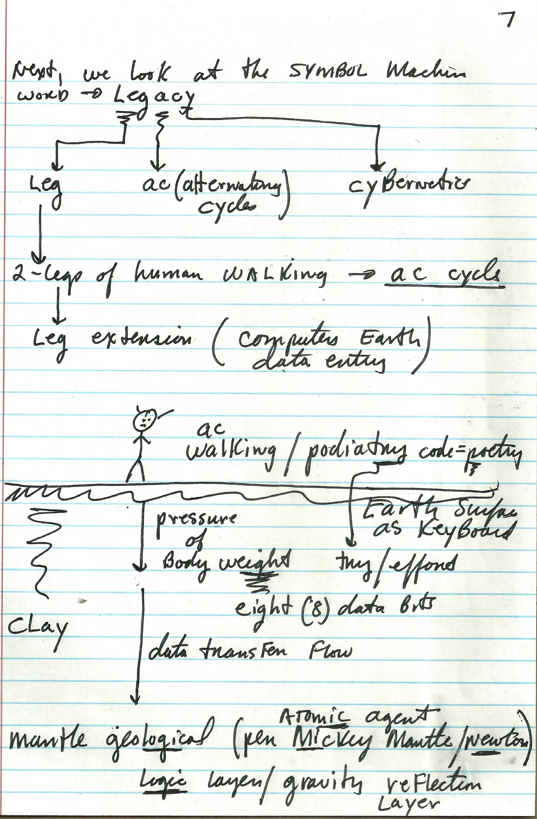 7
Next, we look at the SYMBOL Machine
word → Legacy
Leg
ac (alternating cycles)
cyBernetics
2-Legs of human WALKING → ac cycle
Leg extension (computers Earth data entry)
ac
walking / podiatry code = poetry
Earth Surface
as KeyBoard
pressure
of
Body weight
try/effort
eight (8) data Bits
CLay
data transfer Flow
Atomic agent
mantle geological (per Mickey Mantle/newton)
Logic Layer/gravity reflection
Layer